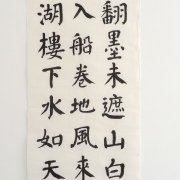 翻墨未遮山白
入船卷地風來
湖樓下水如天